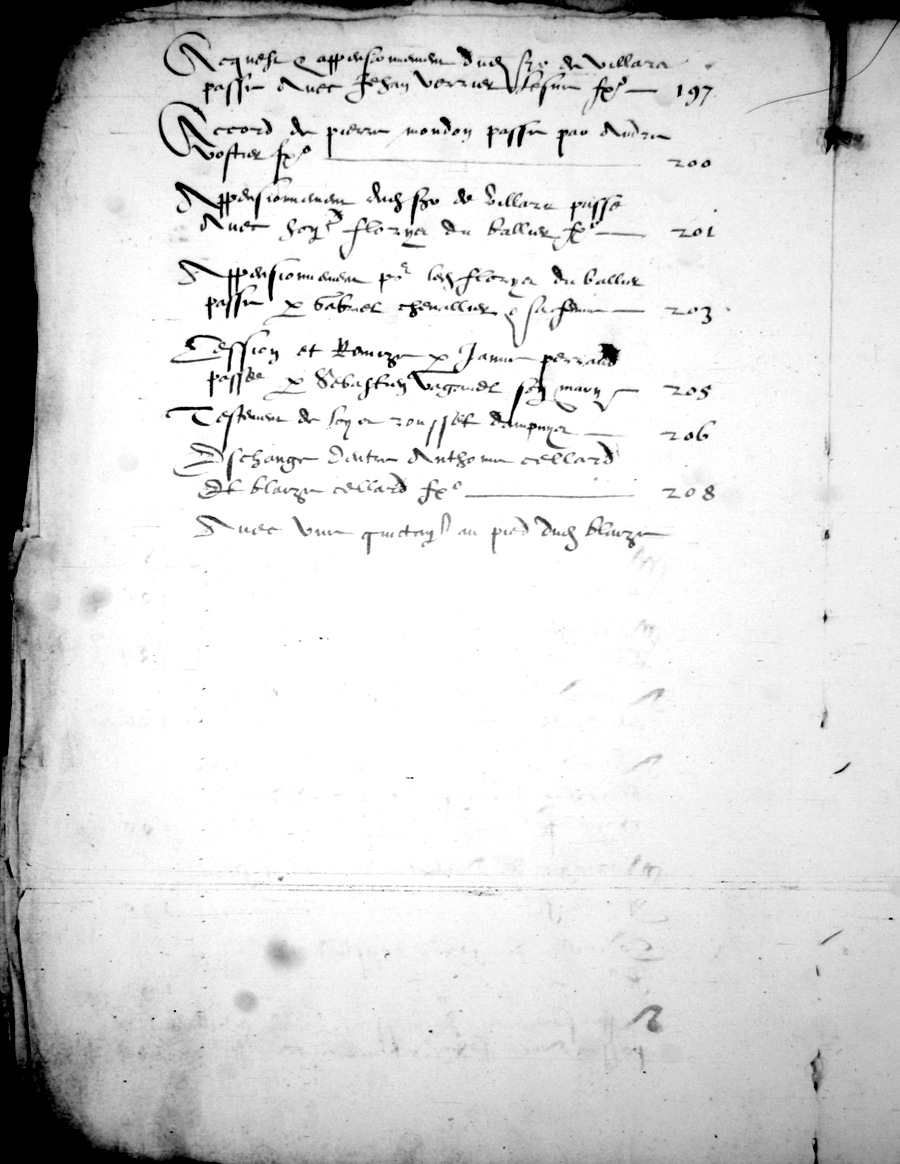 Acquest & appensionnement dud sr de Villars
passe avec Jehan Verrier fxo 197
Accord de pierre mondon passe par Andre
fxo 200
Appensionnement dud sr de Villars passe
Avec floryer du ballier fxo 201
Appensionnement por led floryer du ballier
passe p Gabriel chevallier & sa feme 203
Cession et Remize p Janne perraud
passee p Sebastien son mary 205
Testement de rousset 206
Eschange dentre Anthoine cellard
Et blaize cellard fxo 208
Avec une quictan au pied dud blaize